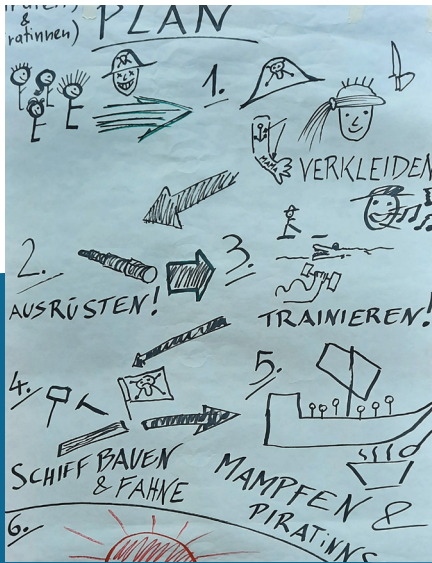 &
ratinnen)
PLAN
1.
MAMA
VERKLEIDEN
2.
AUSRÜSTEN!
3.
TRAINIEREN!
4.
SCHIFF BAUEN
& FAHNE
5.
MAMPFEN &
6.